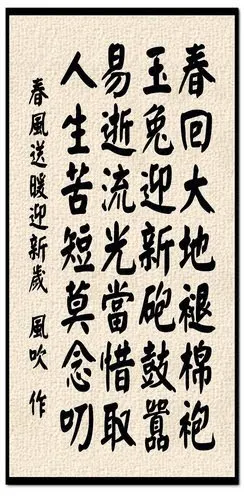 春回大地褪棉袍
玉兔迎新砲鼓囂
易逝流光當惜取
人生苦短莫念叨
春風送暖迎新歲 風吹 作